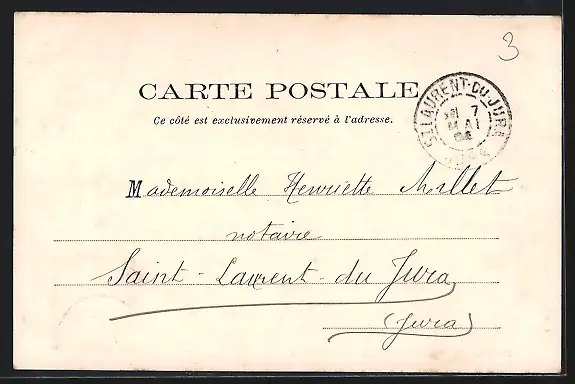 3
CARTE POSTALE
Ce côté est exclusivement réservé à l'adresse.
ST LAURENT-DU-JURA
7
MAI
04
Mademoiselle Henriette Millet
notaire
Saint-Laurent-du Jura
(Jura)